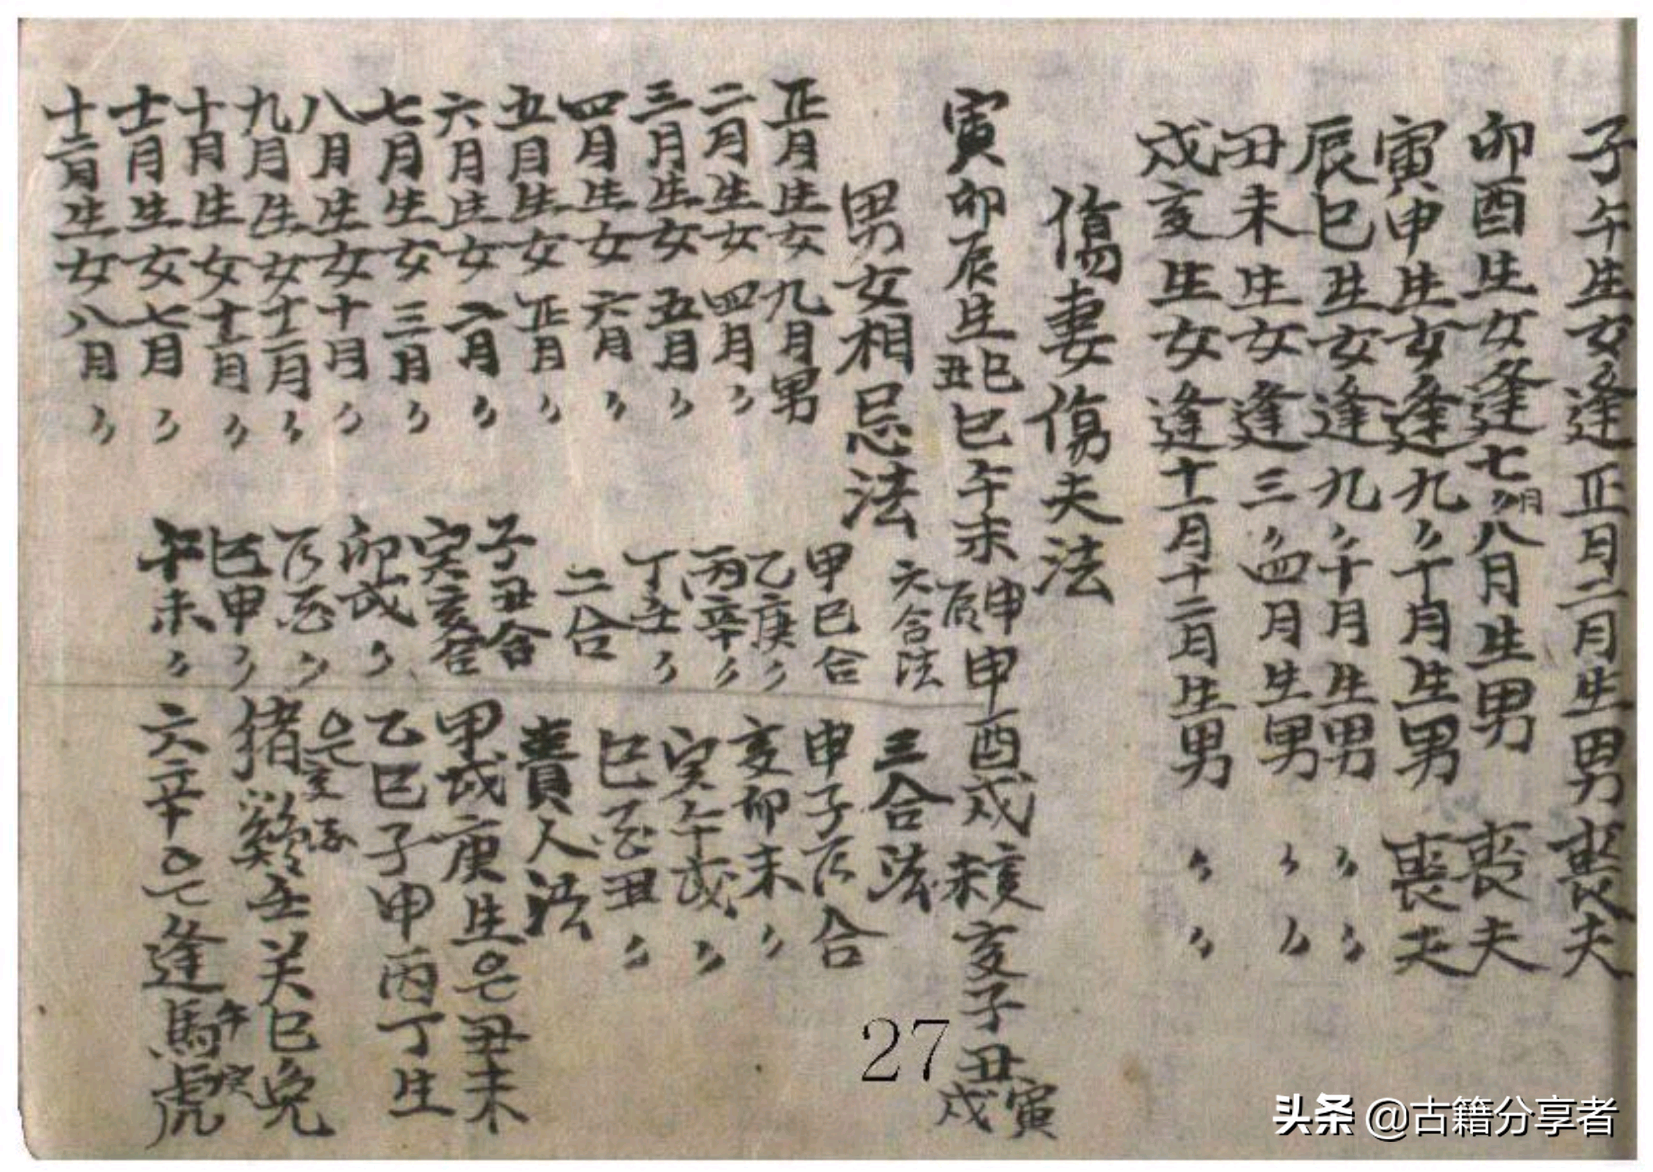 子午生女逢正月二月生男喪夫
卯酉生女逢七〃月八月生男喪夫
寅申生女逢九〃十月生男喪夫
辰巳生女逢九〃十月生男〃〃
丑未生女逢三〃四月生男〃〃
戌亥生女逢十一月十二月生男〃〃
傷妻傷夫法
寅卯辰生巳丑巳午未申辰申酉戌亥未亥子丑寅戌
男女相忌法
正月生女九月男
二月生女四月〃
三月生女五月〃
四月生女六月〃
五月生女正月〃
六月生女二月〃
七月生女三月〃
八月生女十月〃
九月生女十二月〃
十月生女十一月〃
十一月生女七月〃
十二月生女八月〃
六合法
甲巳合
乙庚〃
丙辛〃
丁壬〃
二合
子丑合
寅亥合
卯戌〃
辰酉〃
巳申〃
午未〃
三合法
申子辰合
亥卯未〃
寅午戌〃
巳酉丑〃
貴人法
甲戊庚生은丑未
乙巳子申丙丁生
은亥
猪鷄壬癸巳兔
六辛은逢馬午虎寅
27
头条 @古籍分享者